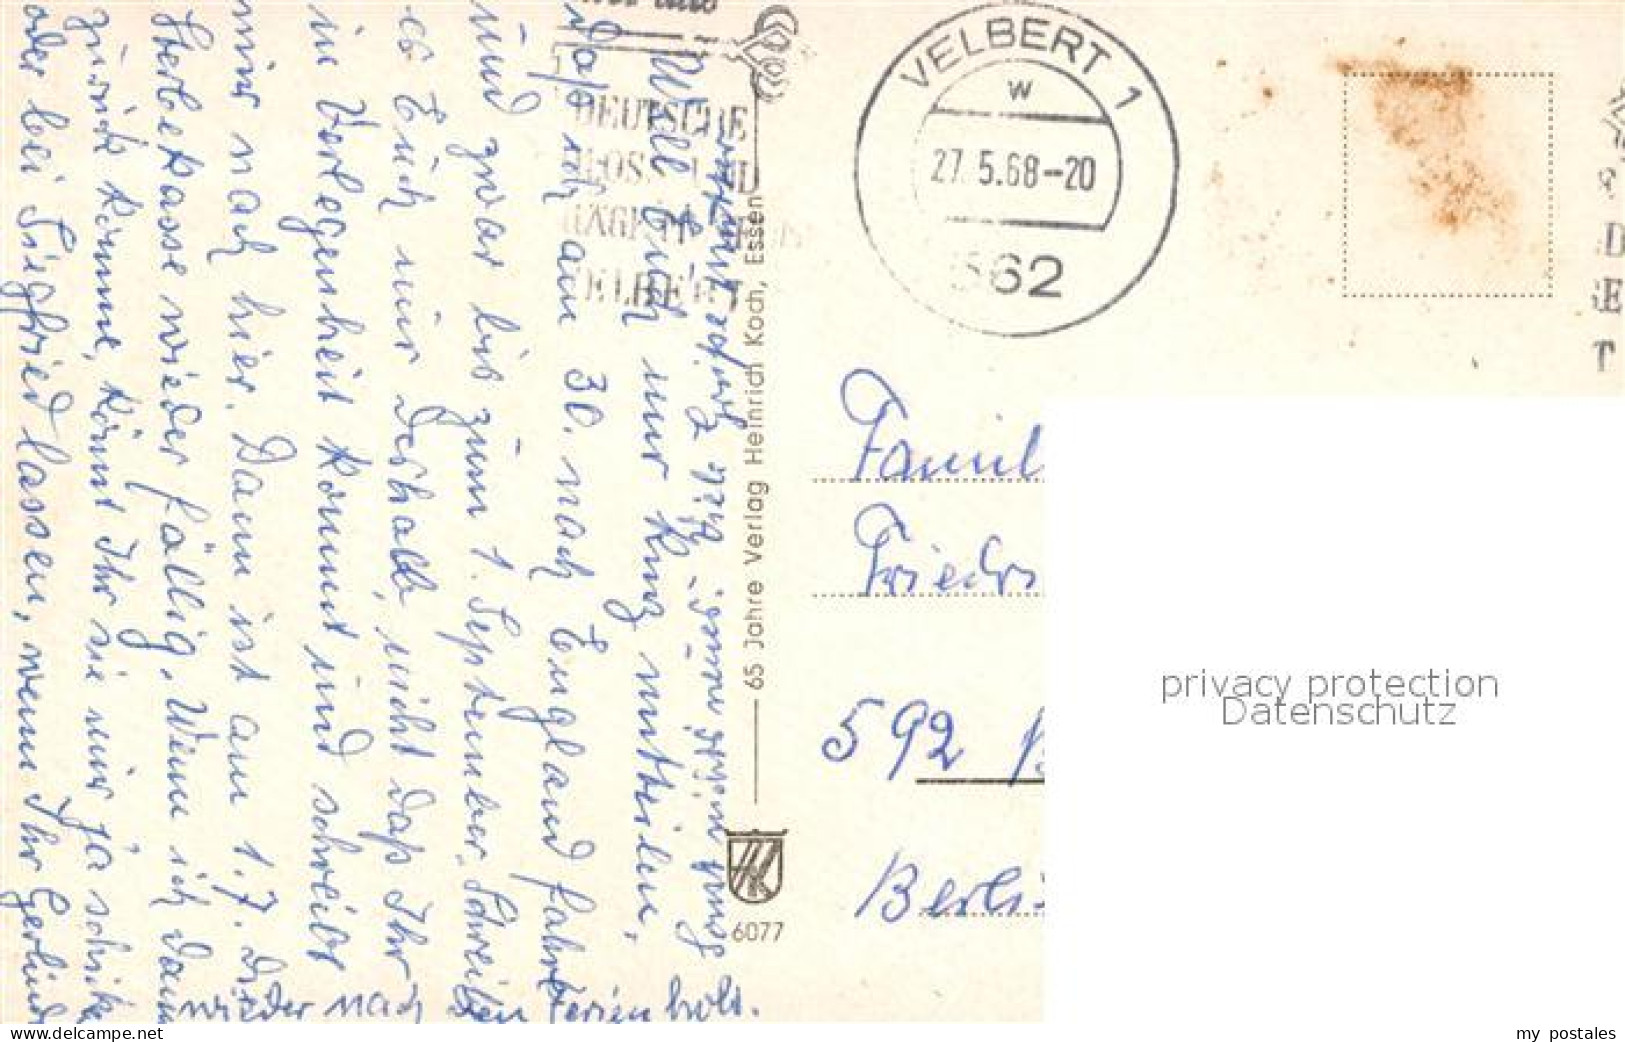 Will Euch nur kurz mitteilen,
daß ich am 30. nach England fahre
und zwar bis zum 1. September. Schreibe
es Euch nur deshalb, nicht daß Ihr
in Verlegenheit kommt und schreibt
mir nach hier. Dann ist am 1.7. die
Sterbekasse wieder fällig. Wenn ich dann
zurück komme, könnt Ihr sie mir ja schicken
oder bei Siegfried lassen, wenn Ihr Gerlinde
wieder nach den Ferien holt.
65 Jahre Verlag Heinrich Koch, Essen
6077
DEUTSCHE
VELBERT 1
w
27.5.68--20
562
Famil
Friedr
592
Berli
privacy protection
Datenschutz
www.delcampe.net
my_postales